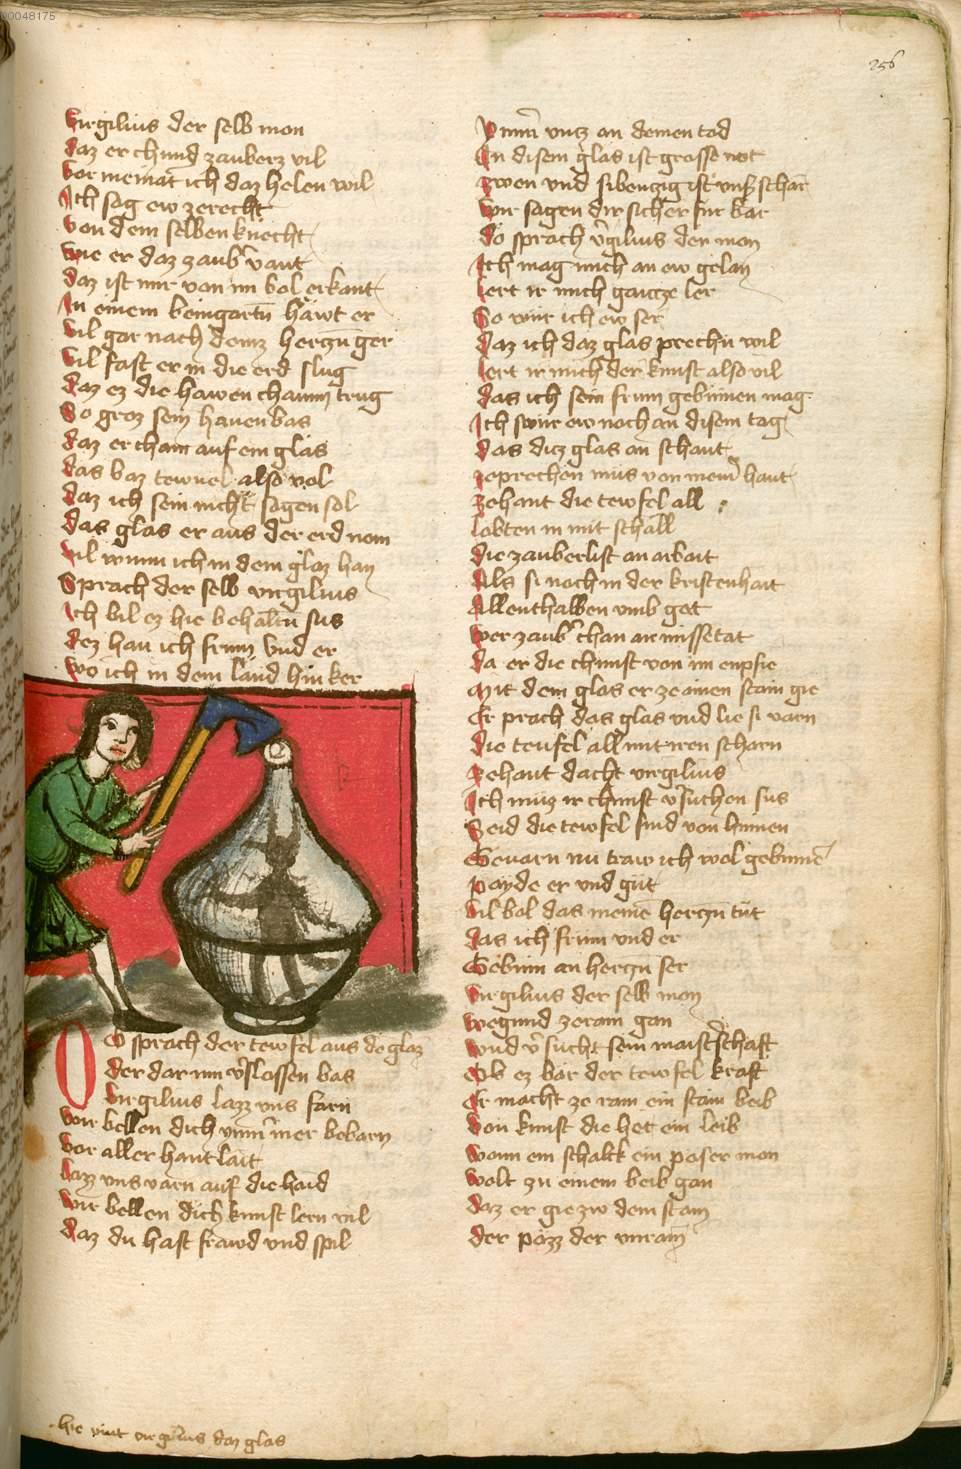 00048175
256
Virgilius der selb mon
daz er chund zauberz vil
vor meinat ich daz helen wil
Ich sag ew zerecht
von dem selben knecht
wie er daz zaub vant
daz ist mir von im bol erkant
In einem beingarten hawt er
vil gar nach seinz herczn ger
vil fast er in die erd slug
daz ez die hawen chaum trug
So groz sein hauen bas
daz er cham auf ein glas
das baz tewuel also vol
daz ich sein nicht sagen sol
das glas er aus der erd nom
vil wunn ich in dem glaz han
Sprach der selb virgilius
Ich bil ez hie behalten sus
dez han ich frum vnd er
wo ich in dem land hin ker
DO sprach der tewfel aus dē glaz
der dar inn vslossen bas
virgilius lazz vns farn
wir bellen dich ymmer bebarn
vor aller hant lait
Lazz vns varn auf die haid
wir bellen dich kunst lern vil
daz du hast frawd vnd spil
ymm vntz an deinen tod
In disem glas ist grosse not
zwen vnd sibenczig ist vnser schar
wir sagen dir sicher fur bar
do sprach vgilius der mon
Ich mag mich an ew gelan
lert ir mich gancze ler
So wur ich ew ser
daz ich daz glas prechn wil
lert ir mich der kunst also vil
das ich sein frum gebinnen mag
Ich swur ew noch an disem tag
das dicz glas an schant
zeprechen mus von meinr hant
zehant die tewfel all
lobten in mit schall
die zauberlist an arbait
Als si noch in der kristenhait
Allenthalben vmb get
wer zaub chan an missetat
da er die chunst von im enpfie
Mit dem glas er ze ainen stain gie
Er prach das glas vnd lie si varn
die teufel all mit iren scharn
zehant dacht virgilius
Ich muz ir chunst vsuchen sus
Seid die tewfel sind von hinnen
Geuarn nu traw ich wol gebinnē
payde er vnd gut
vil bol das meinē herczn tut
das ich frum vnd er
Gebinn an herczn ser
virgilius der selb mon
wegund ze ram gan
vnd vsucht sein maisterschaft
Ob ez bar der tewfel kraft
Er macht ze ram ein stain beib
von kunst die het ein leib
wann ein schalck ein poser mon
wolt zu einem beib gan
daz er gie zw dem stain
der pozz der vnrain
hie vint virgilius daz glas